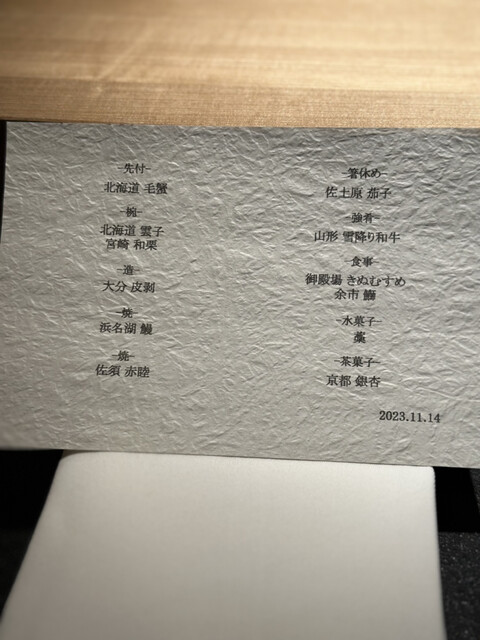 -先付-
北海道 毛蟹
-椀-
北海道 雲子
宮崎 和栗
-造-
大分 皮剥
-焼-
浜名湖 鰻
-焼-
佐須 赤陸
-箸休め-
佐土原 茄子
-強肴-
山形 雪降り和牛
-食事-
御殿場 きぬむすめ
余市 鰤
-水菓子-
-茶菓子-
京都 銀杏
2023.11.14